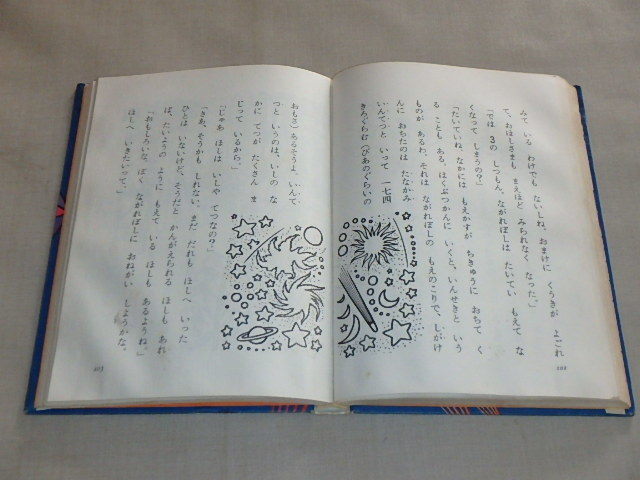 みて いる わけでも ないしね、おまけに くうきが よごれ
て、おほしさまも まえほど みられなく なった。」
「では 3の しつもん。ながれぼしは たいてい もえて な
くなって しまうの？」
「たいていね。なかには もえかすが ちきゅうに おちて く
る ことも ある。はくぶつかんに いくと、いんせきと いう
ものが あるわ。それは ながれぼしの もえのこりで、しがけ
んに おちたのは たなかみ
いんてつと いって 一七四
きろぐらむ（ぴあのぐらいの
202
おもさ）あるそうよ。いんて
つと いうのは、いしの な
かに てつが たくさん ま
じって いるから。」
「じゃあ ほしは いしや てつなの？」
「さあ、そうかも しれない。まだ だれも ほしへ いった
ひとは いないけど、そうだと かんがえられる ほしも あれ
ば、たいようの ように もえて いる ほしも あるようね。」
「おもしろいな。ぼく ながれぼしに おねがい しようかな。
ほしへ いきたいって。」
203